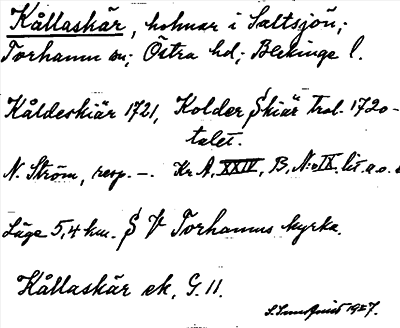 Kållaskär, holmar i Saltsjön;
Torhamn sn; Östra hd; Blekinge l.
Kåldeskiär 1721, Kolder Skiär Trol. 1720-
talet.
N. Ström, resp. –. Kr A, XXIV, B, N:o IX. lit a.o.
Läge 5,4 km. S V Torhamns kyrka.
Kållaskär ek. G. 11.
1927.